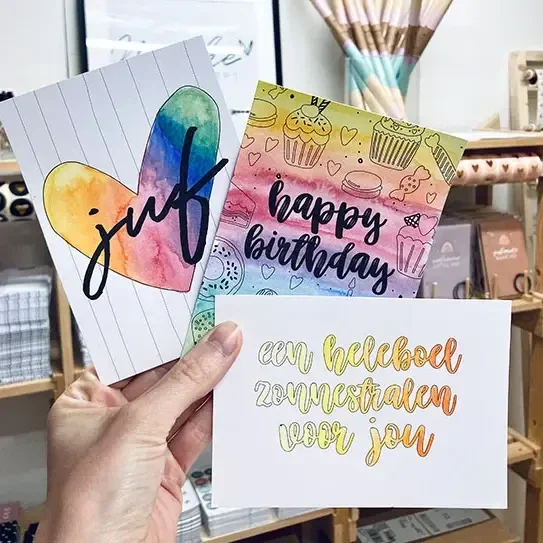 juf
happy
birthday
een heleboel
zonnestralen
voor jou